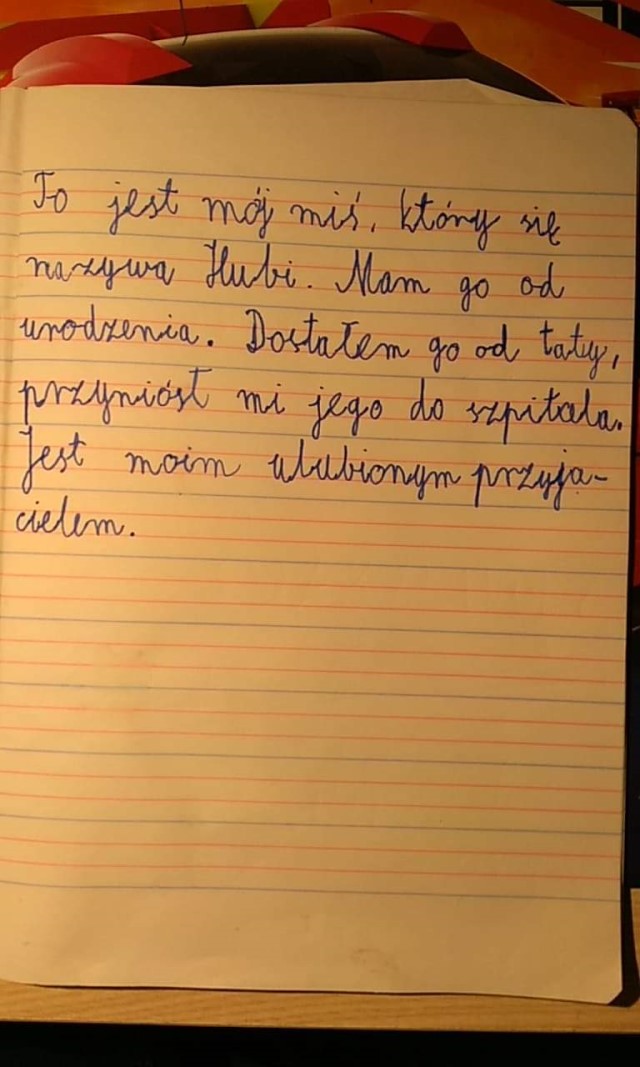 To jest mój miś, który się
nazywa Hubi. Mam go od
urodzenia. Dostałem go od taty,
przyniósł mi jego do szpitala.
Jest moim ulubionym przyja-
cielem.